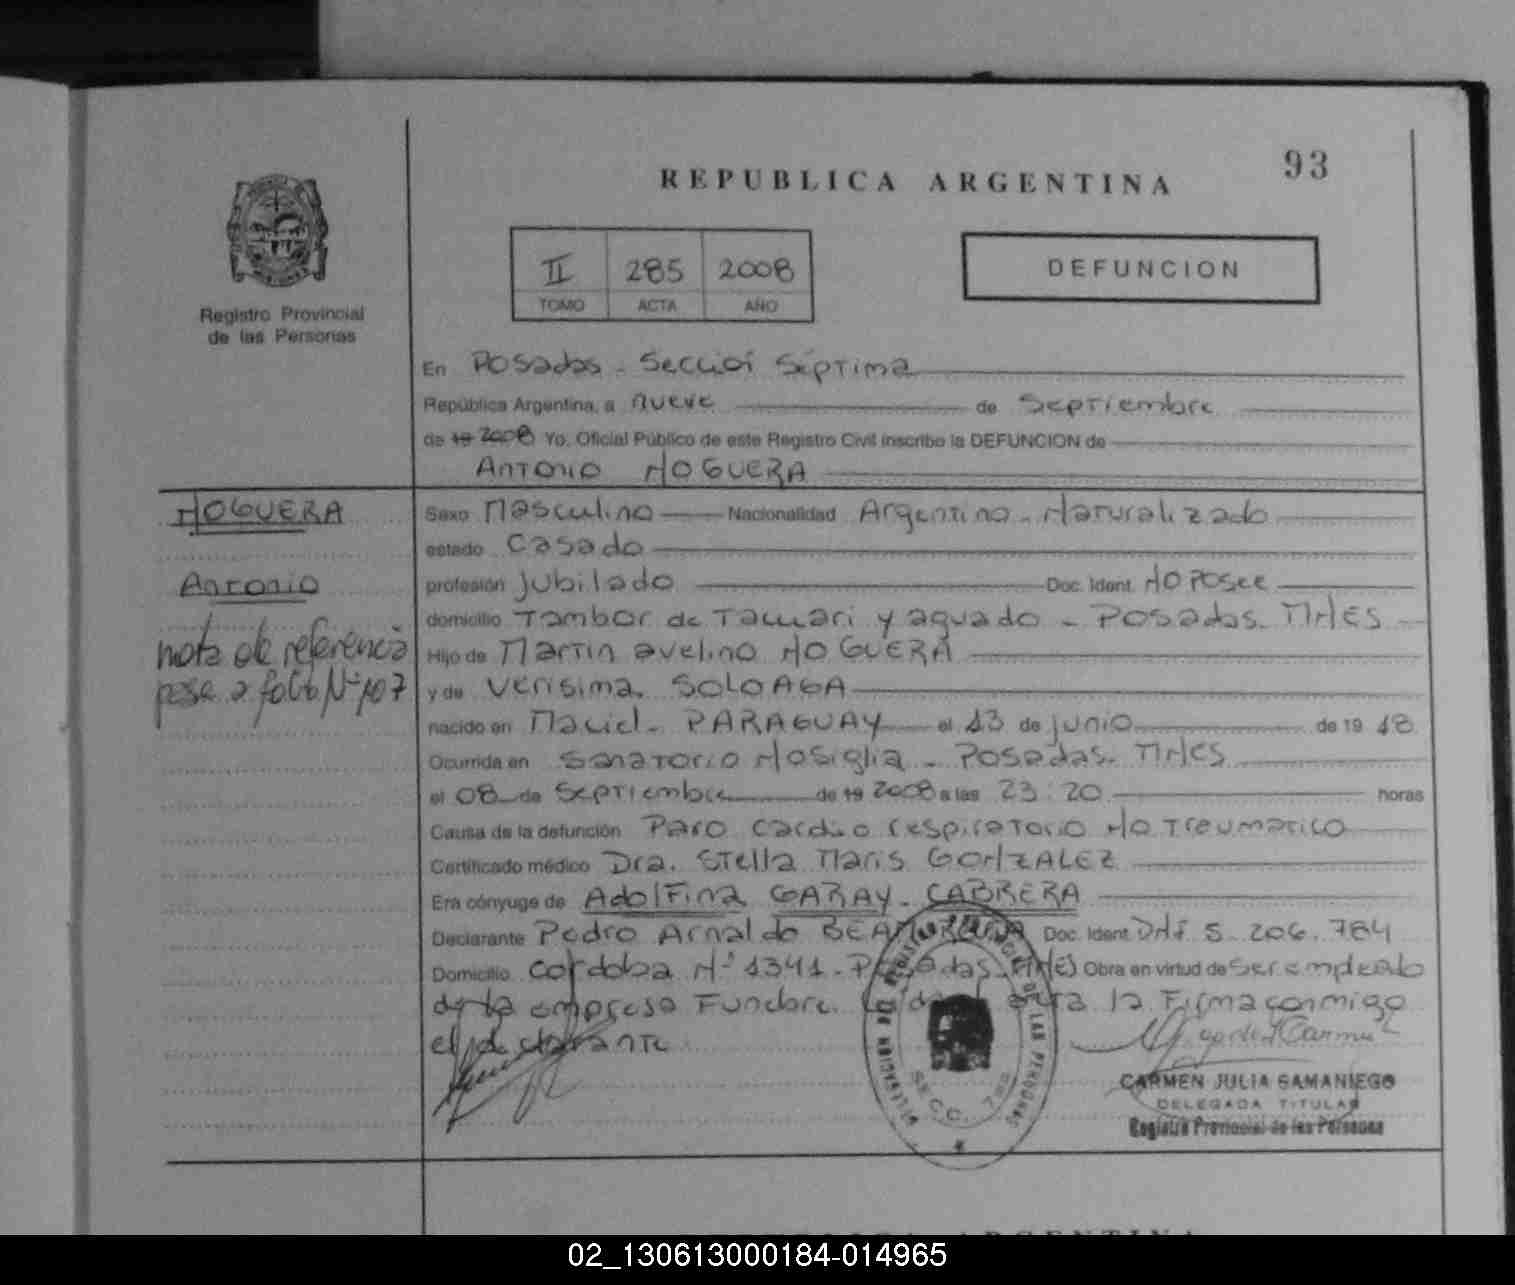 93
REPUBLICA ARGENTINA
II 285 2008
TOMO ACTA AÑO
DEFUNCION
Registro Provincial
de las Personas
En Posadas - Sección Séptima
República Argentina, a nueve de Septiembre
de 19 2008 Yo, Oficial Público de este Registro Civil inscribo la DEFUNCION de
Antonio NOGUERA
NOGUERA
Antonio
nota de referencia
pasa a folio Nº 107
Sexo Masculino Nacionalidad Argentino - Naturalizado
estado Casado
profesión jubilado Doc. Ident. No Posee
domicilio Tambor de Tacuari y aguado - Posadas - MNES
Hijo de Martin avelino NOGUERA
y de Verisima SOLOAGA
nacido en Maciel - PARAGUAY el 13 de junio de 19 18
Ocurrida en Sanatorio Nosiglia - Posadas - MNES
el 08 de Septiembre de 19 2008 a las 23:20 horas
Causa de la defunción Paro cardio respiratorio No Traumatico
Certificado médico Dra. Stella Maris GONZALEZ
Era cónyuge de Adolfina GARAY - CABRERA
Declarante Pedro Arnaldo Doc. Ident. DNI 5.206.784
Domicilio Cordoba Nº 1341 - Posadas - MNES Obra en virtud de ser empleado
de la empresa Funebre. Leida el acta la Firma conmigo
el declarante
CARMEN JULIA SAMANIEGO
DELEGADA TITULAR
Registro Provincial de las Personas
REPUBLICA ARGENTINA
02_130613000184-014965